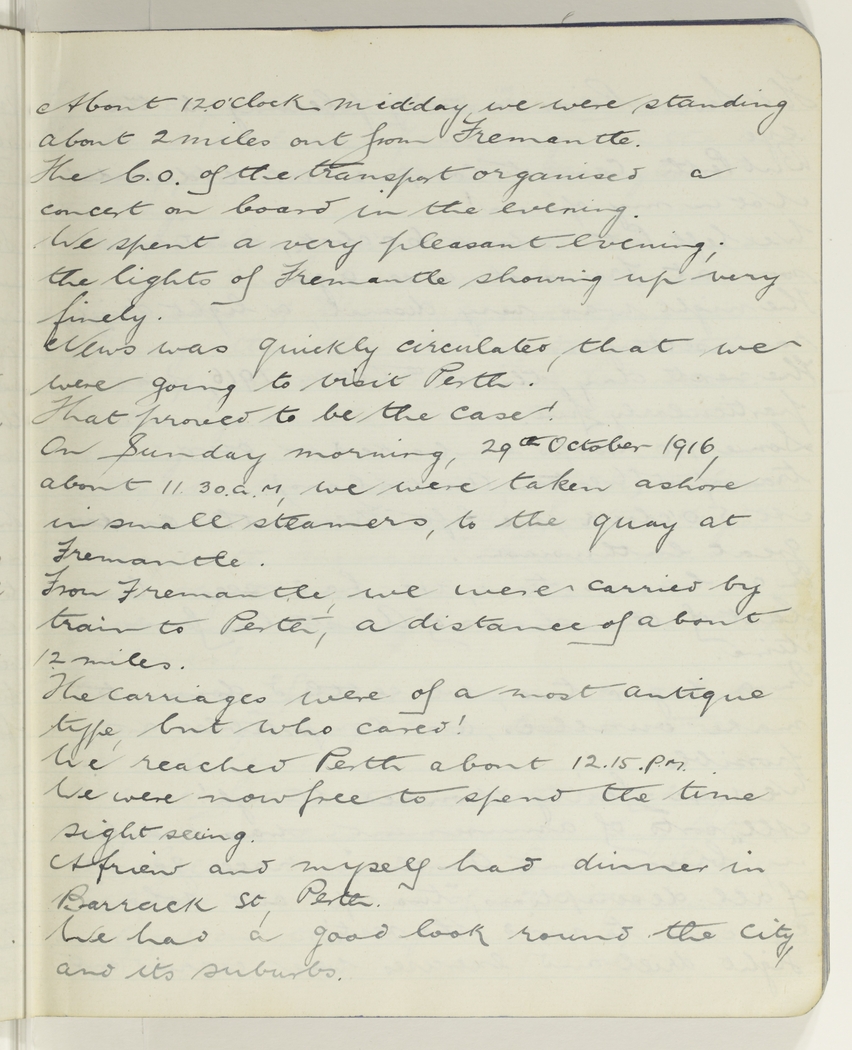 About 12 O'Clock midday we were standing
about 2 miles out from Fremantle.
The C.O. of the transport organised a
concert on board in the evening.
We spent a very pleasant evening;
the lights of Fremantle showing up very
finely.
News was quickly circulated, that we
were going to visit Perth.
That proved to be the case!
On Sunday morning, 29th October 1916,
about 11.30.a.m, we were taken ashore
in small steamers, to the quay at
Fremantle.
From Fremantle, we were carried by
train to Perth, a distance of about
12 miles.
The carriages were of a most antique
type, but who cared!
We reached Perth about 12.15.P.M.
We were now free to spend the time
sight seeing.
A friend and myself had dinner in
Barrack St, Perth.
We had a good look round the city,
and its suburbs.